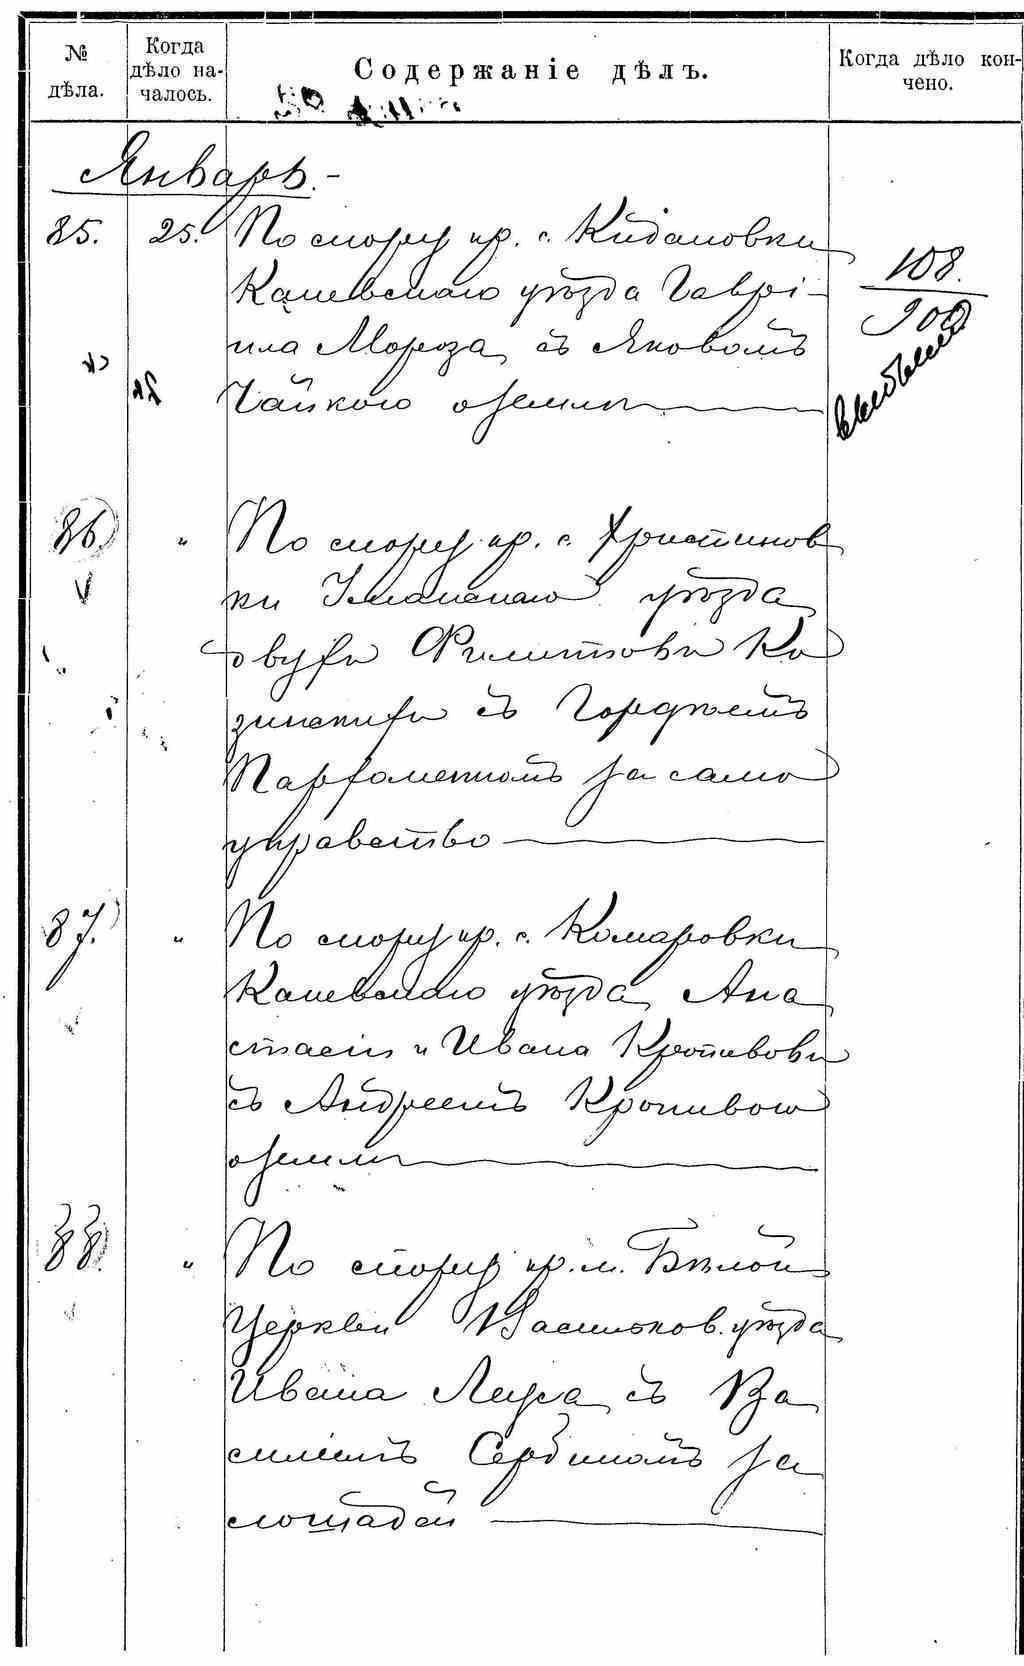 № дѣла.
Когда дѣло началось.
Содержаніе дѣлъ.
Когда дѣло кончено.
Январь.
85. 25. По спору кр. с. Кидановки
Каневскаго уѣзда Гаврі-
ила Мороза съ Яковомъ
Чайкою о землѣ
108.
900
86. " По спору кр. с. Христинов
ки Уманскаго уѣзда
Ко
зинскихъ съ Гордѣемъ
Парфоменкомъ за само
управство
87. " По спору кр. с. Комаровки
Каневскаго уѣзда Ана
стасіи и Ивана
съ Андреемъ Кропивою
о землѣ
88. " По спору кр. м. Бѣлой
Церкви Васильков. уѣзда
Ивана съ Ва
силіемъ Сербиномъ за
лошадей